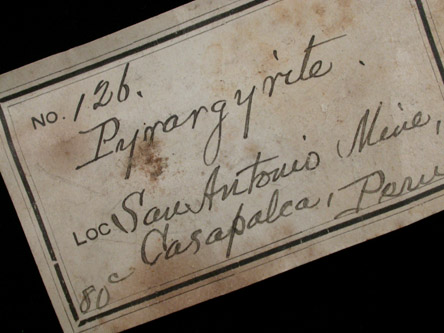 NO. 126.
Pyrargyrite.
LOC San Antonio Mine,
Casapalca, Peru
80c